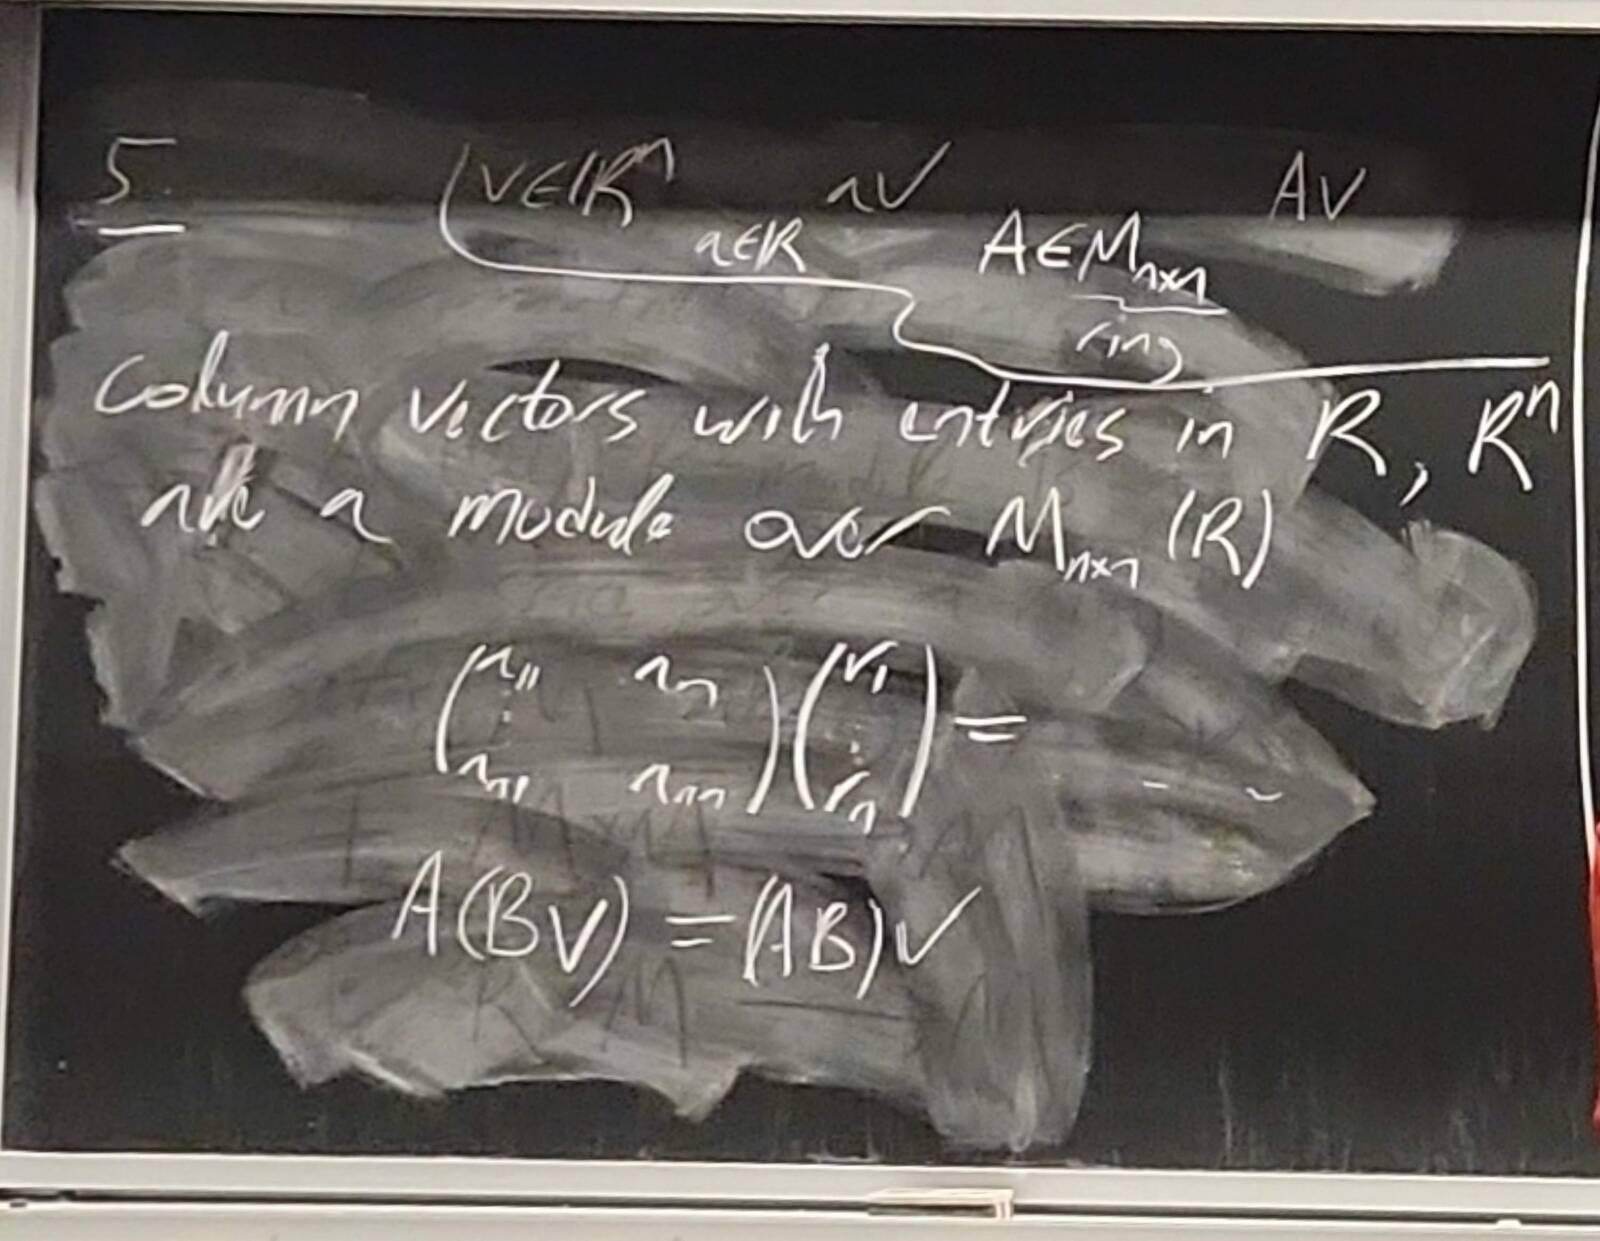 5. v∈ℝⁿ av Av
a∈R A∈Mₙₓₙ
ring
Column vectors with entries in R, Rⁿ
are a module over Mₙₓₙ (R)
(a₁₁ a₁ₙ) (r₁) =
(⋮ ) (⋮)
(aₙ₁ aₙₙ) (rₙ)
A(Bv) = (AB)v